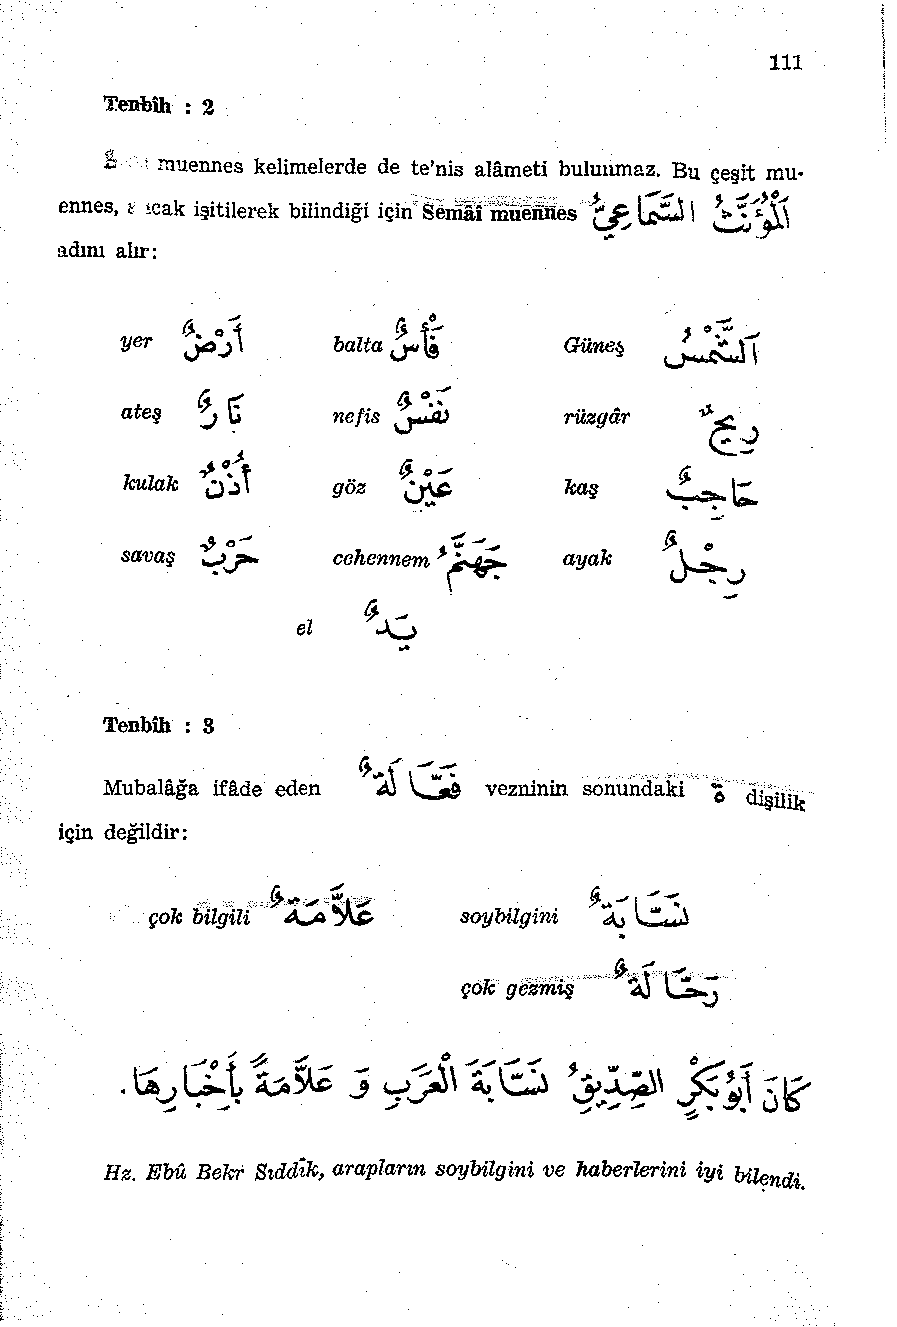 111
Tenbîh : 2
muennes kelimelerde de te'nis alâmeti bulunmaz. Bu çeşit mu-
ennes, işitilerek bilindiği için Semâî muennes اَلْمُؤَنَّثُ السَّمَاعِيُّ
adını alır:
yer اَرْضٌ balta فَأْسٌ Güneş اَلشَّمْسُ
ateş نَارٌ nefis نَفْسٌ rüzgâr رِيحٌ
kulak أُذُنٌ göz عَيْنٌ kaş حَاجِبٌ
savaş حَرْبٌ cehennem جَهَنَّمُ ayak رِجْلٌ
el يَدٌ
Tenbîh : 3
Mubalâğa ifâde eden فَعَّالَةٌ vezninin sonundaki ة dişilik
için değildir:
çok bilgili عَلاَّمَةٌ soybilgini نَسَّابَةٌ
çok gezmiş رَحَّالَةٌ
كَانَ أَبُوبَكْرٍ الصِّدِّيقُ نَسَّابَةَ الْعَرَبِ وَ عَلاَّمَةً بِأَخْبَارِهَا.
Hz. Ebû Bekr Sıddîk, arapların soybilgini ve haberlerini iyi bilendi.